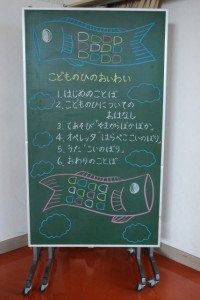 こどものひのおいわい
1. はじめのことば
2. こどものひについての
おはなし
3. てあそび"やまからぽかぽか。
4. オペレッタ"はらぺここいのぼり。
5. うた"こいのぼり。
6. おわりのことば